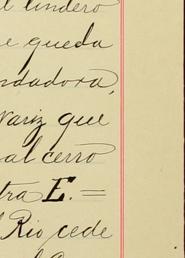 el lindero
e queda
ndadora,
variz que
al cerro
tra E. =
Rio cede